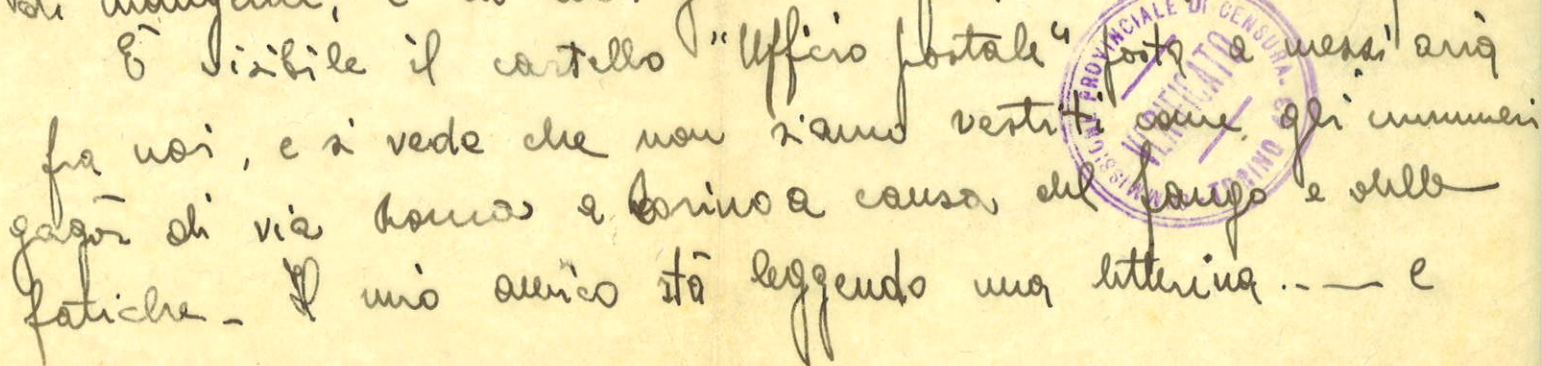 di mangiare, e
È visibile il cartello "Ufficio postale" posta a mezz'aria
fra noi, e si vede che non siamo vestiti come gli innumeri
gagà di via Roma a Torino a causa del fango e delle
fatiche_ Il mio amico stà leggendo una letterina..__ e
COMMISSIONE PROVINCIALE DI CENSURA. TORINO
VERIFICATO